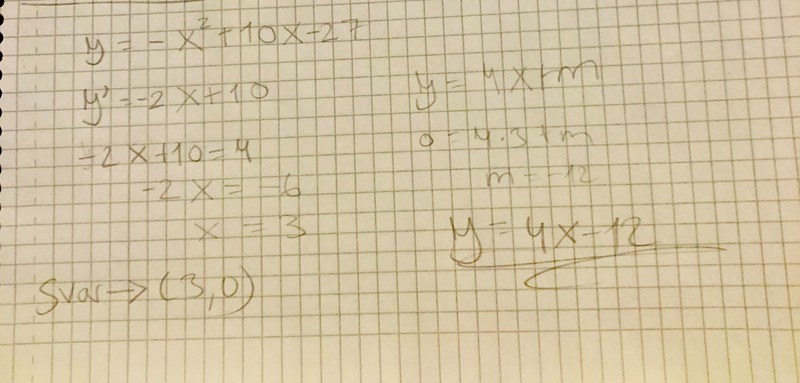 y = -x²+10x-27
y' = -2x+10
-2x+10=4
-2x = -6
x = 3
Svar→(3,0)
y = 4x+m
0 = 4·3+m
m=-12
y = 4x-12